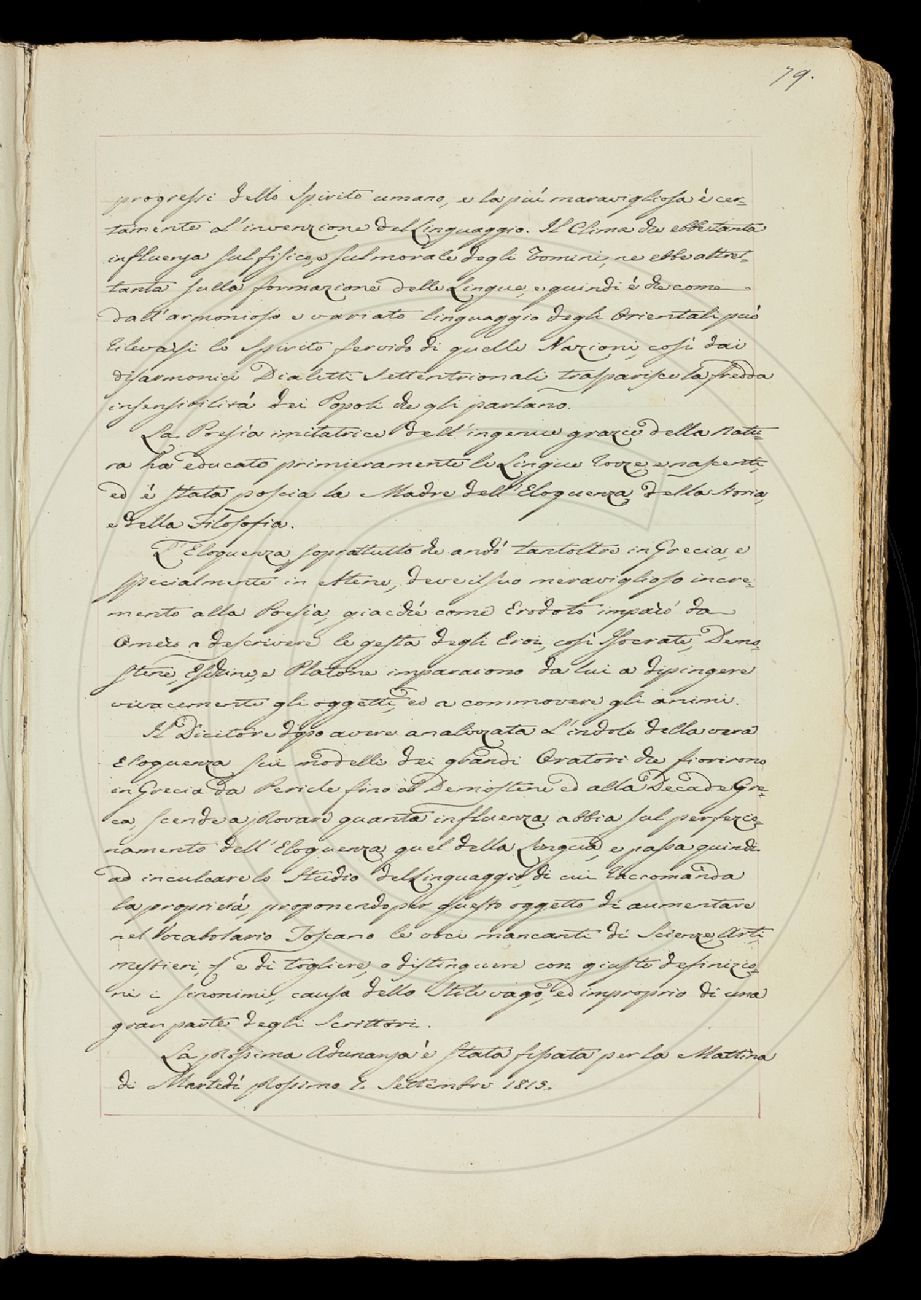 79.
progressi dello Spirito umano, e la più maravigliosa è cer-
tamente l'invenzione del Linguaggio. Il Clima che ebbe tanta
influenza sul fisico, e sul morale degli Uomini, ne ebbe altret-
tanta sulla formazione delle Lingue, e quindi è che come
dall'armonioso e variato linguaggio degli Orientali può
rilevarsi lo Spirito fervido di quelle Nazioni, così dai
disarmonici Dialetti Settentrionali trasparisce la fredda
insensibilità dei Popoli che gli parlano.
La Poesia imitatrice dell'ingenue grazie della Natu-
ra ha educato primieramente le Lingue rozze e nascenti,
ed è stata poscia la Madre dell'Eloquenza della Storia,
e della Filosofia.
L'Eloquenza soprattutto che andò tant'oltre in Grecia, e
specialmente in Atene, deve il suo meraviglioso incre-
mento alla Poesia, giacché come Erodoto imparò da
Omero a descrivere le gesta degli Eroi, così Isocrate, Demo-
stene, Eschine, e Platone impararono da lui a dipingere
vivacemente gli oggetti, ed a commovere gli animi.
Il Dicitore dopo avere analizzata l'indole della vera
Eloquenza sui modelli dei grandi Oratori che fiorirono
in Grecia da Pericle fino a Demostene ed alla Decade Gre-
ca, scende a provare quanta influenza abbia sul perfezio-
namento dell'Eloquenza quel della Lingua, e passa quindi
ad inculcare lo Studio del Linguaggio, di cui raccomanda
la proprietà, proponendo per questo oggetto di aumentare
nel Vocabolario Toscano le voci mancanti di Scienze Arti,
mestieri, e di togliere, o distinguere con giuste definizio-
ni i sinonimi, causa dello Stile vago, ed improprio di una
gran parte degli Scrittori.
La prossima Adunanza è stata fissata per la Mattina
di Martedì prossimo 7. Settembre 1813.